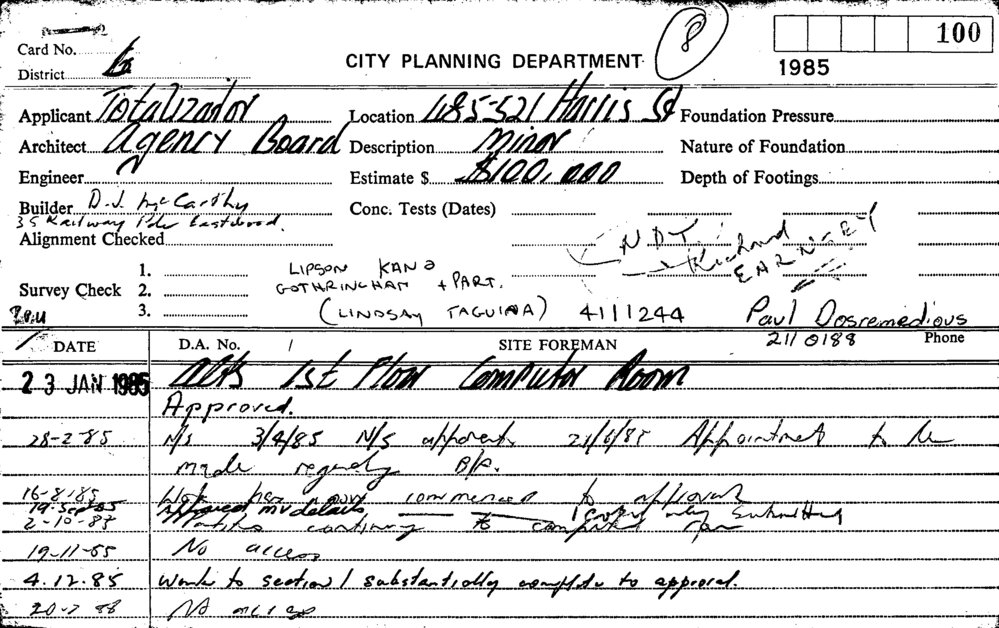 Card No.
District
CITY PLANNING DEPARTMENT
8
100
1985
Applicant Totalizador
Location 485-521 Harris St
Foundation Pressure
Architect Agency Board
Description Minor
Nature of Foundation
Engineer
Estimate $ $100,000
Depth of Footings
Builder D.J. McCarthy
35 Railway Pde Eastwood.
Conc. Tests (Dates)
NDT
Richard
EARNSEY
Alignment Checked
Survey Check
1.
2.
3.
LIPSON KANE
GOTHRINGHAM + PART.
(LINDSAY TAGUINA) 4111244
Paul Dosremedious
211 0188 Phone
DATE
D.A. No.
SITE FOREMAN
23 JAN 1985 Alts 1st Floor Computor Room
Approved.
28-2-85 N/S 3/4/85 N/S apparent 21/6/85 Appointment to be
made regarding B/P.
16-8-85 Work has now commenced to approval
19 Sep 85 mv details copy only Submitted
2-10-85 continuing to computer room
19-11-85 No access
4.12.85 Work to section 1 substantially complete to approval.
No access